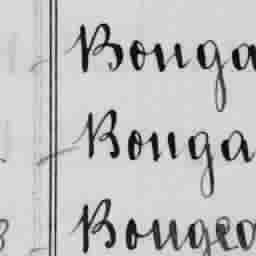 Bouga
Bouga
Bougea